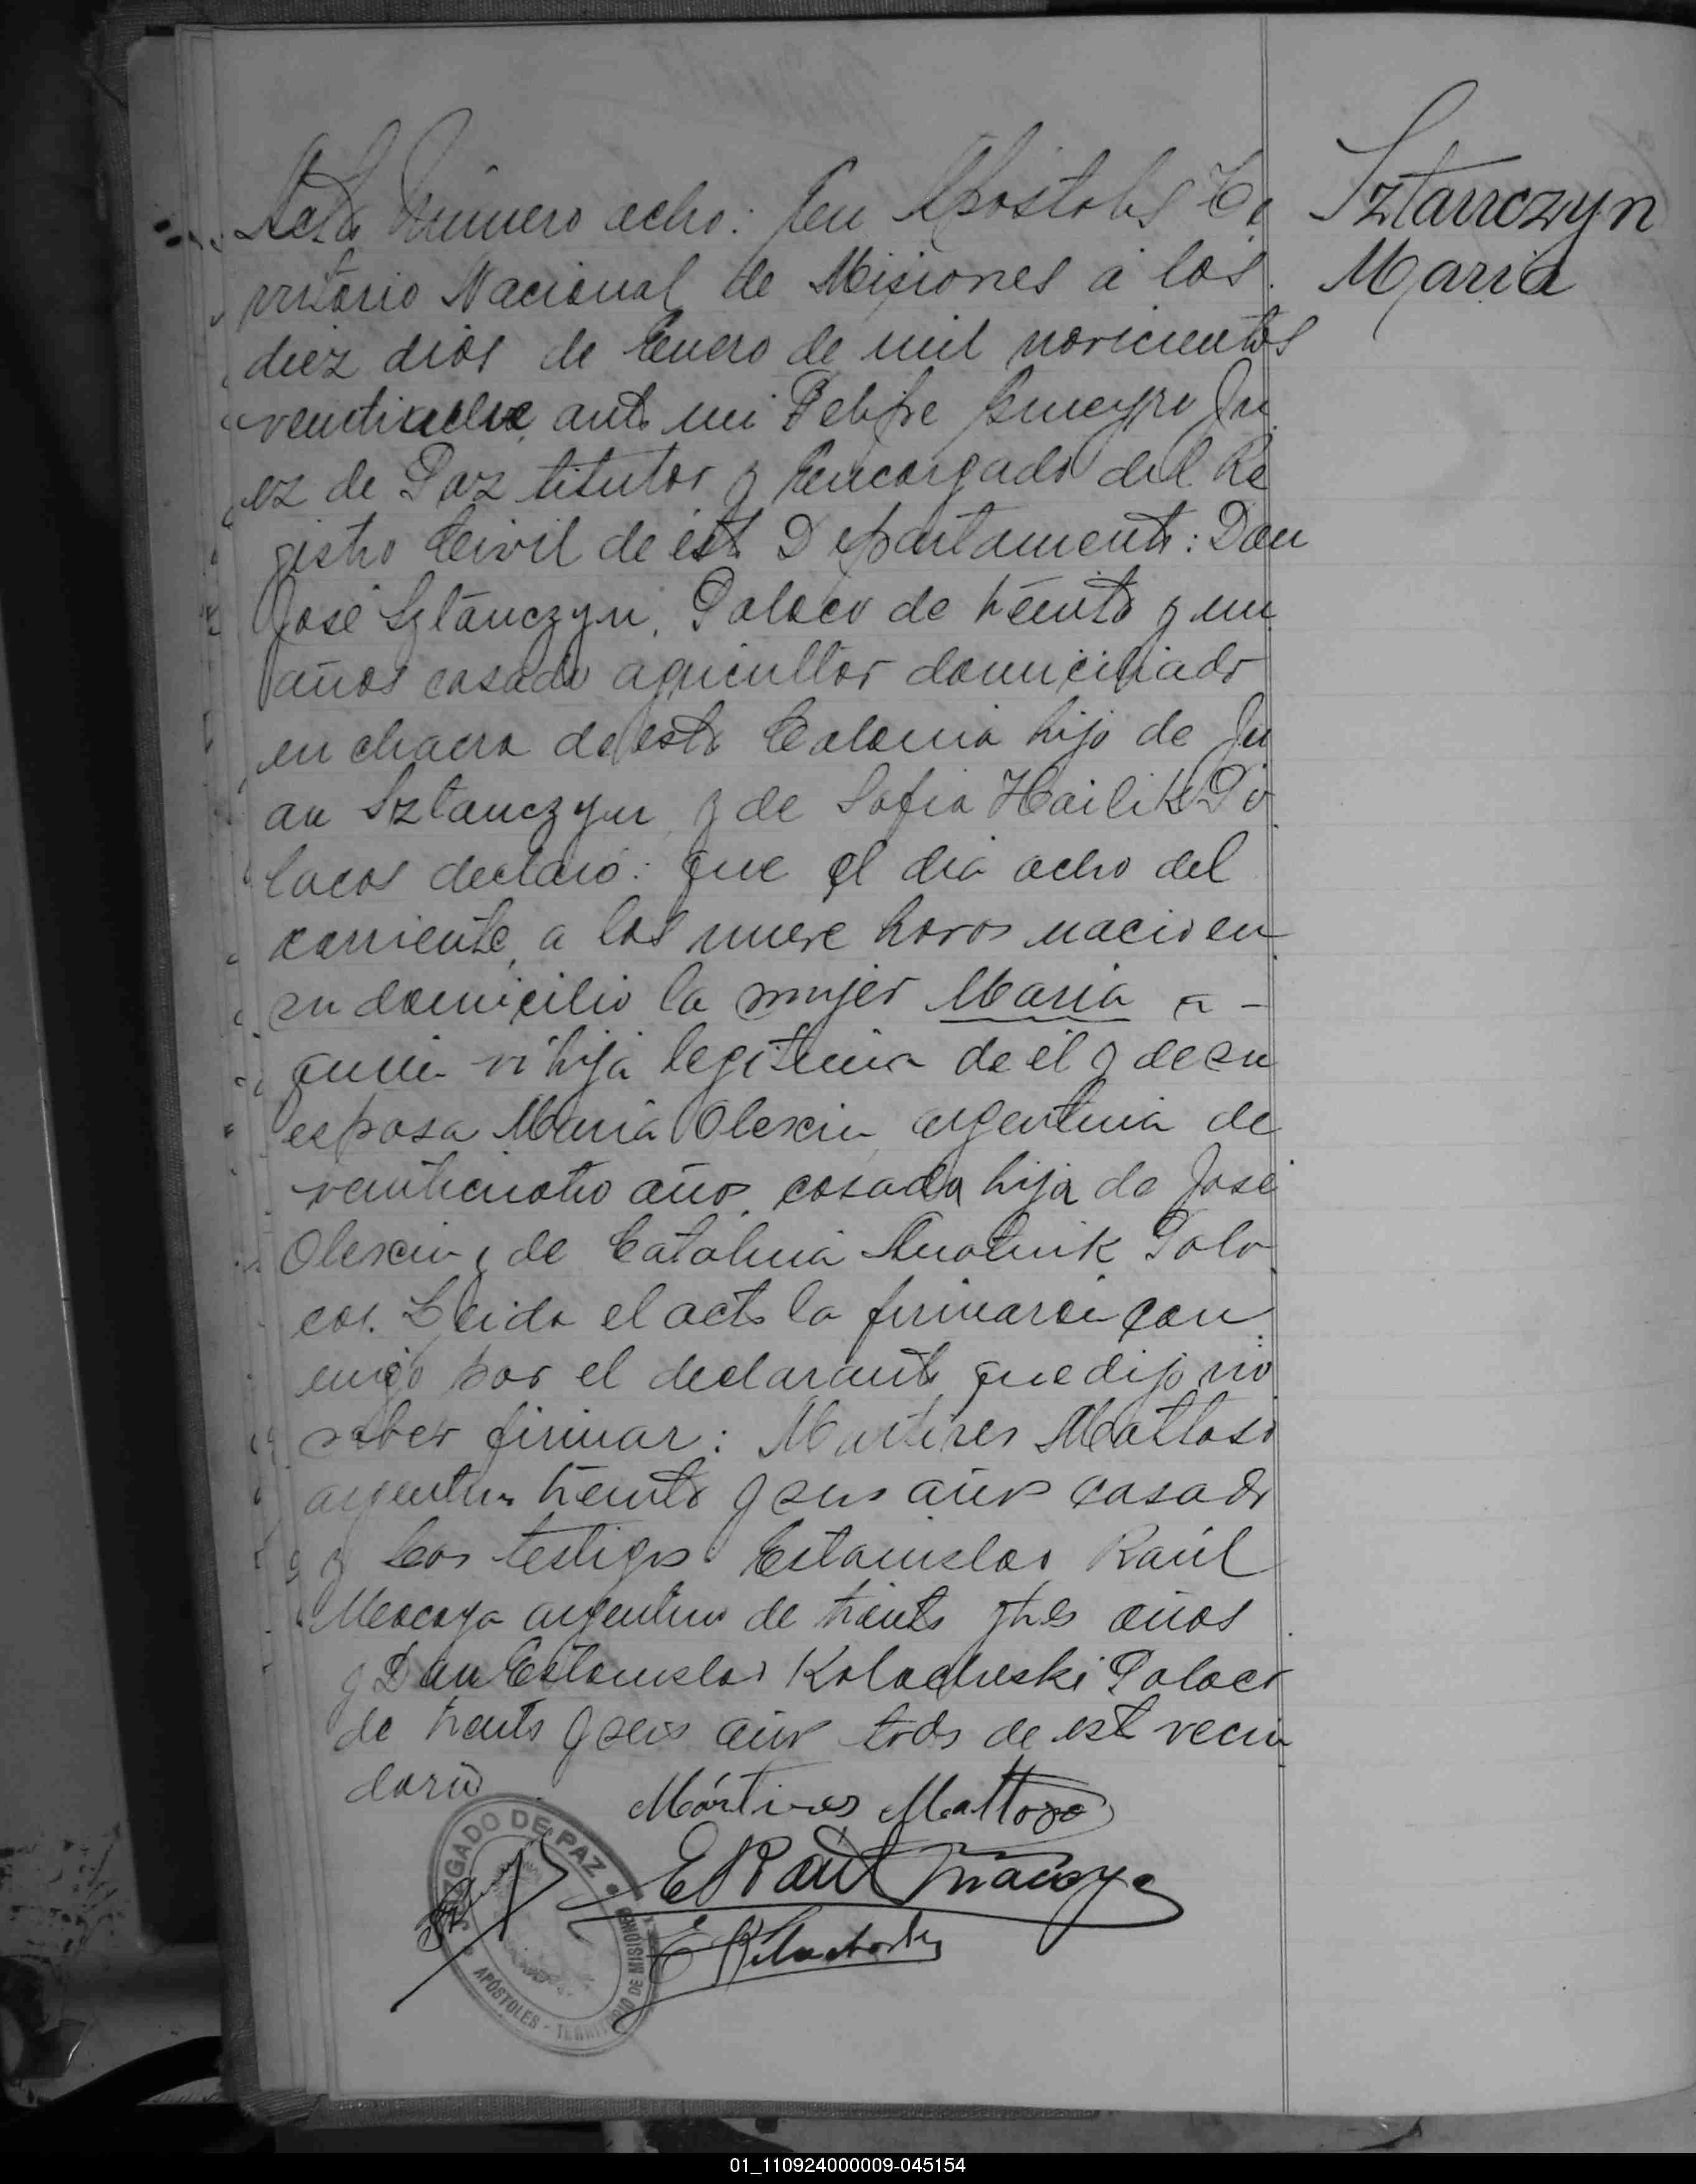 Acta Número ocho: En Apóstoles Te
rritorio Nacional de Misiones a los
diez dias de Enero de mil novecientos
veintinueve ante mi Felipe Ju
ez de Paz titular y Encargado del Re
gistro Civil de este Departamento: Don
José Sztanczyn, Polaco de treinta y un
años casado agricultor domiciliado
en chacra de esta Colonia hijo de Ju
an Sztanczyn y de Sofia Hailik Po
lacos declaró: que el dia ocho del
corriente, a las nueve horas nacio en
su domicilio la mujer Maria a -
quien vi hija legitima de él y de su
esposa Maria Olexin argentina de
veinticuatro años, casada hija de José
Olexin y de Catalina Polo
cos. Leida el acta la firmaron con
migo por el declarante que dijo no
saber firmar: Martires Mattoso
argentino treinta y seis años casado
y los testigos Estanislao Raúl
Macaya argentino de treinta y tres años
y Don Estanislao Kolacheski Polaco
de treinta y seis años todos de este vecin
dario
Sztanczyn
Maria
Mártires Mattoso
E Raúl Macaya
JUZGADO DE PAZ
APÓSTOLES - TERRITORIO DE MISIONES
01_110924000009-045154